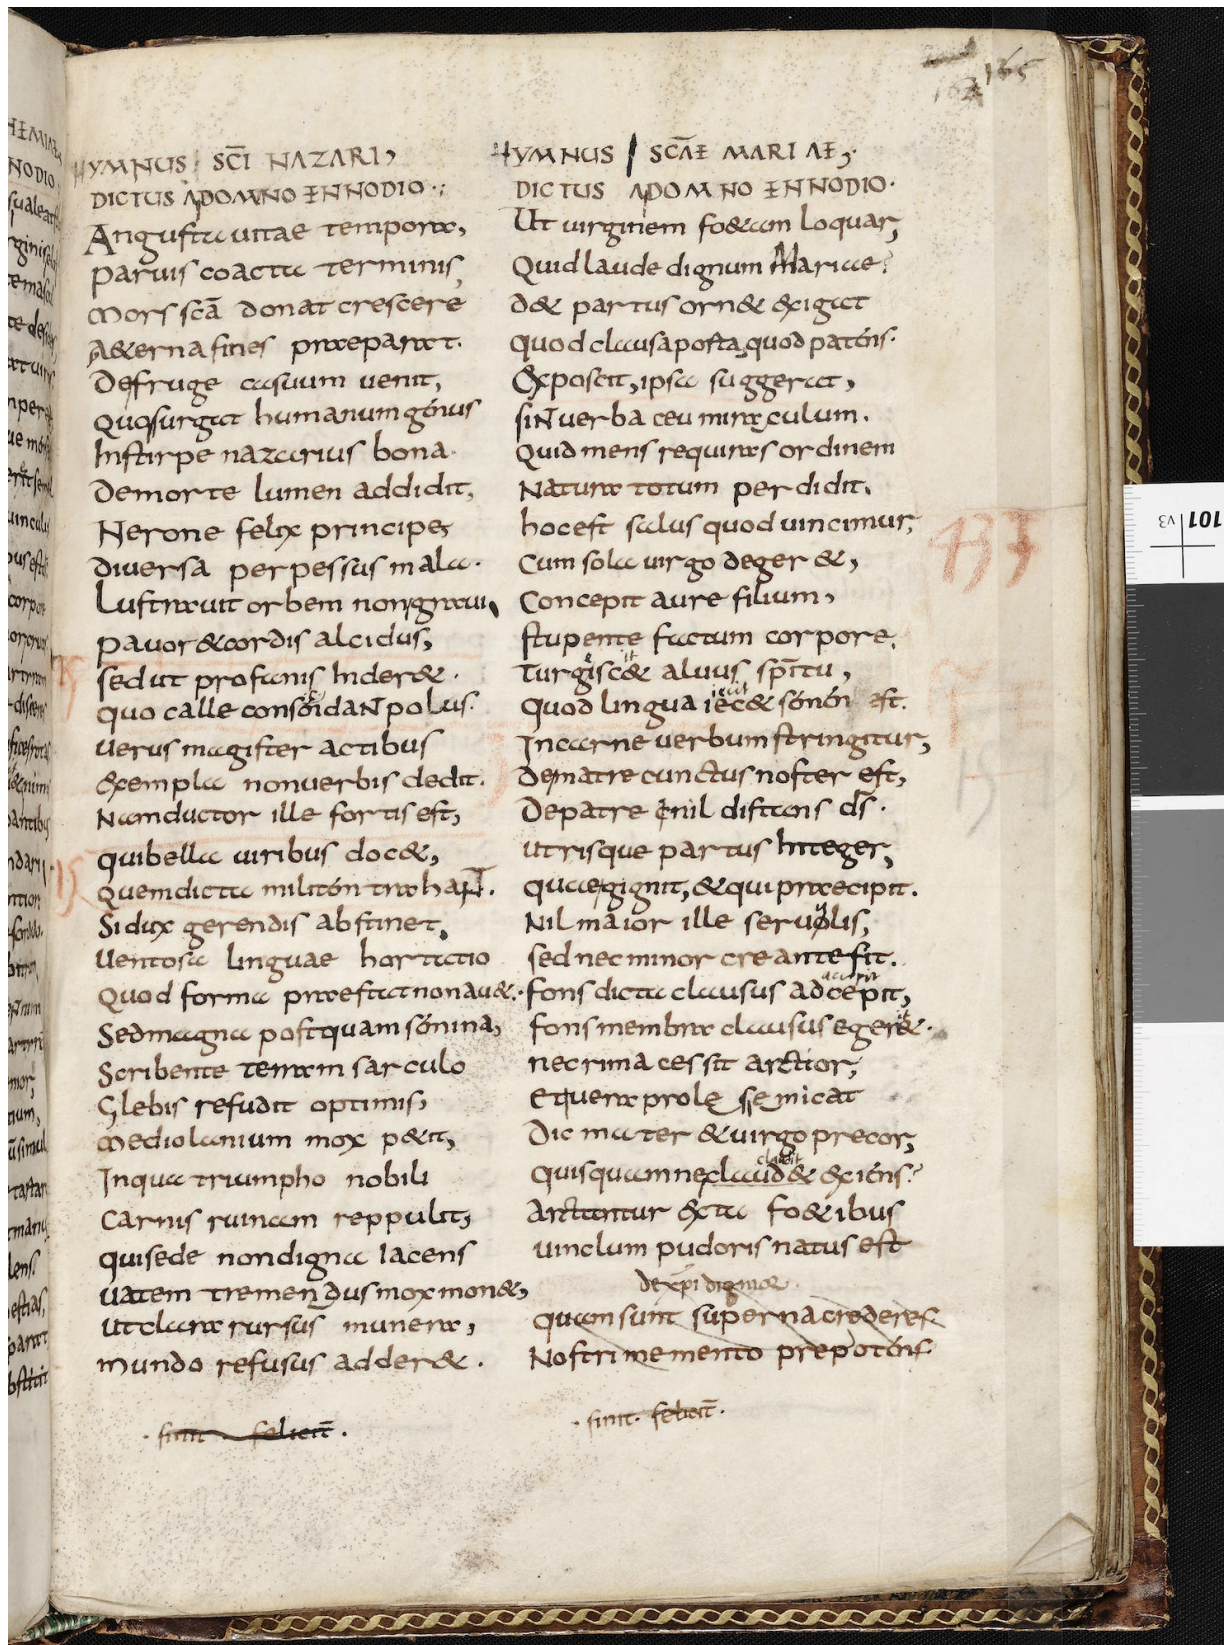 165
HYMNUS SC̄I NAZARI,
DICTUS A DOMNO ENNODIO.
Angusta uitae tempora,
paruis coacta terminis,
Mors sc̄a donat crescere
Aeterna fines praeparat.
De fruge casuum uenit,
Quo surgat humanum genus
In stirpe nazarius bona.
De morte lumen addidit,
Nerone felix principe,
diuersa perpessus mala.
Lustrauit orbem non graui,
pauor & cordis alcidus,
sed ut profanis Inder&.
quo calle conscidaNt polus.
uerus magister actibus
exempla non uerbis dedit.
Nam ductor ille fortis est,
qui bella uiribus doc&,
Quem dicta militen trahaNt.
Si dux gerendis abstinet,
Uentosa linguae hortatio
Quod forma praestat non au&.
Sed magna postquam semina,
Scribente terram sarculo
Glebis refudit optimis,
Mediolanium mox p&it,
In qua triumpho nobili
Carnis ruinam reppulit,
qui sede non digna Iacens
uatem tremendus mox mon&,
Ut clara rursus munera,
mundo refusus adder&.
. finit felicit̄ .
HYMNUS SC̄AE MARIAE,
DICTUS A DOMNO ENNODIO.
Ut uirginem fo&am loquar,
Quid laude dignum Mariae?
d& partus orn& exigat
Quod clausa posta quod patens.
Exposcit, ipsa suggerat,
siNt uerba ceu miraculum.
Quid mens requiras ordinem
Natura totum perdidit.
hoc est salus quod uincimur,
Cum sola uirgo deger&,
Concepit aure filium,
stupente factum corpore.
Turgisc& aluus sp̄itu,
Quod lingua iec& semen est.
In carne uerbum stringitur,
De matre cunctus noster est,
De patre nil distans d̄s.
utrisque partus Integer,
quae gignit, & qui praecipit.
Nil maior ille seruolis,
sed nec minor creante fit.
accepit
fons dicta clausus adcepit,
fons membra clausus eger&.
nec rima cessit artior,
Et uera prole se micat
Dic mater & uirgo precor,
claudit
Quisquamne claud& exiens?
Artantur exta fo&ibus
uinclum pudoris natus est
de xp̄i digniae
quam sunt superna crederes
Nostri memento prepotens.
. finit. felicit̄.